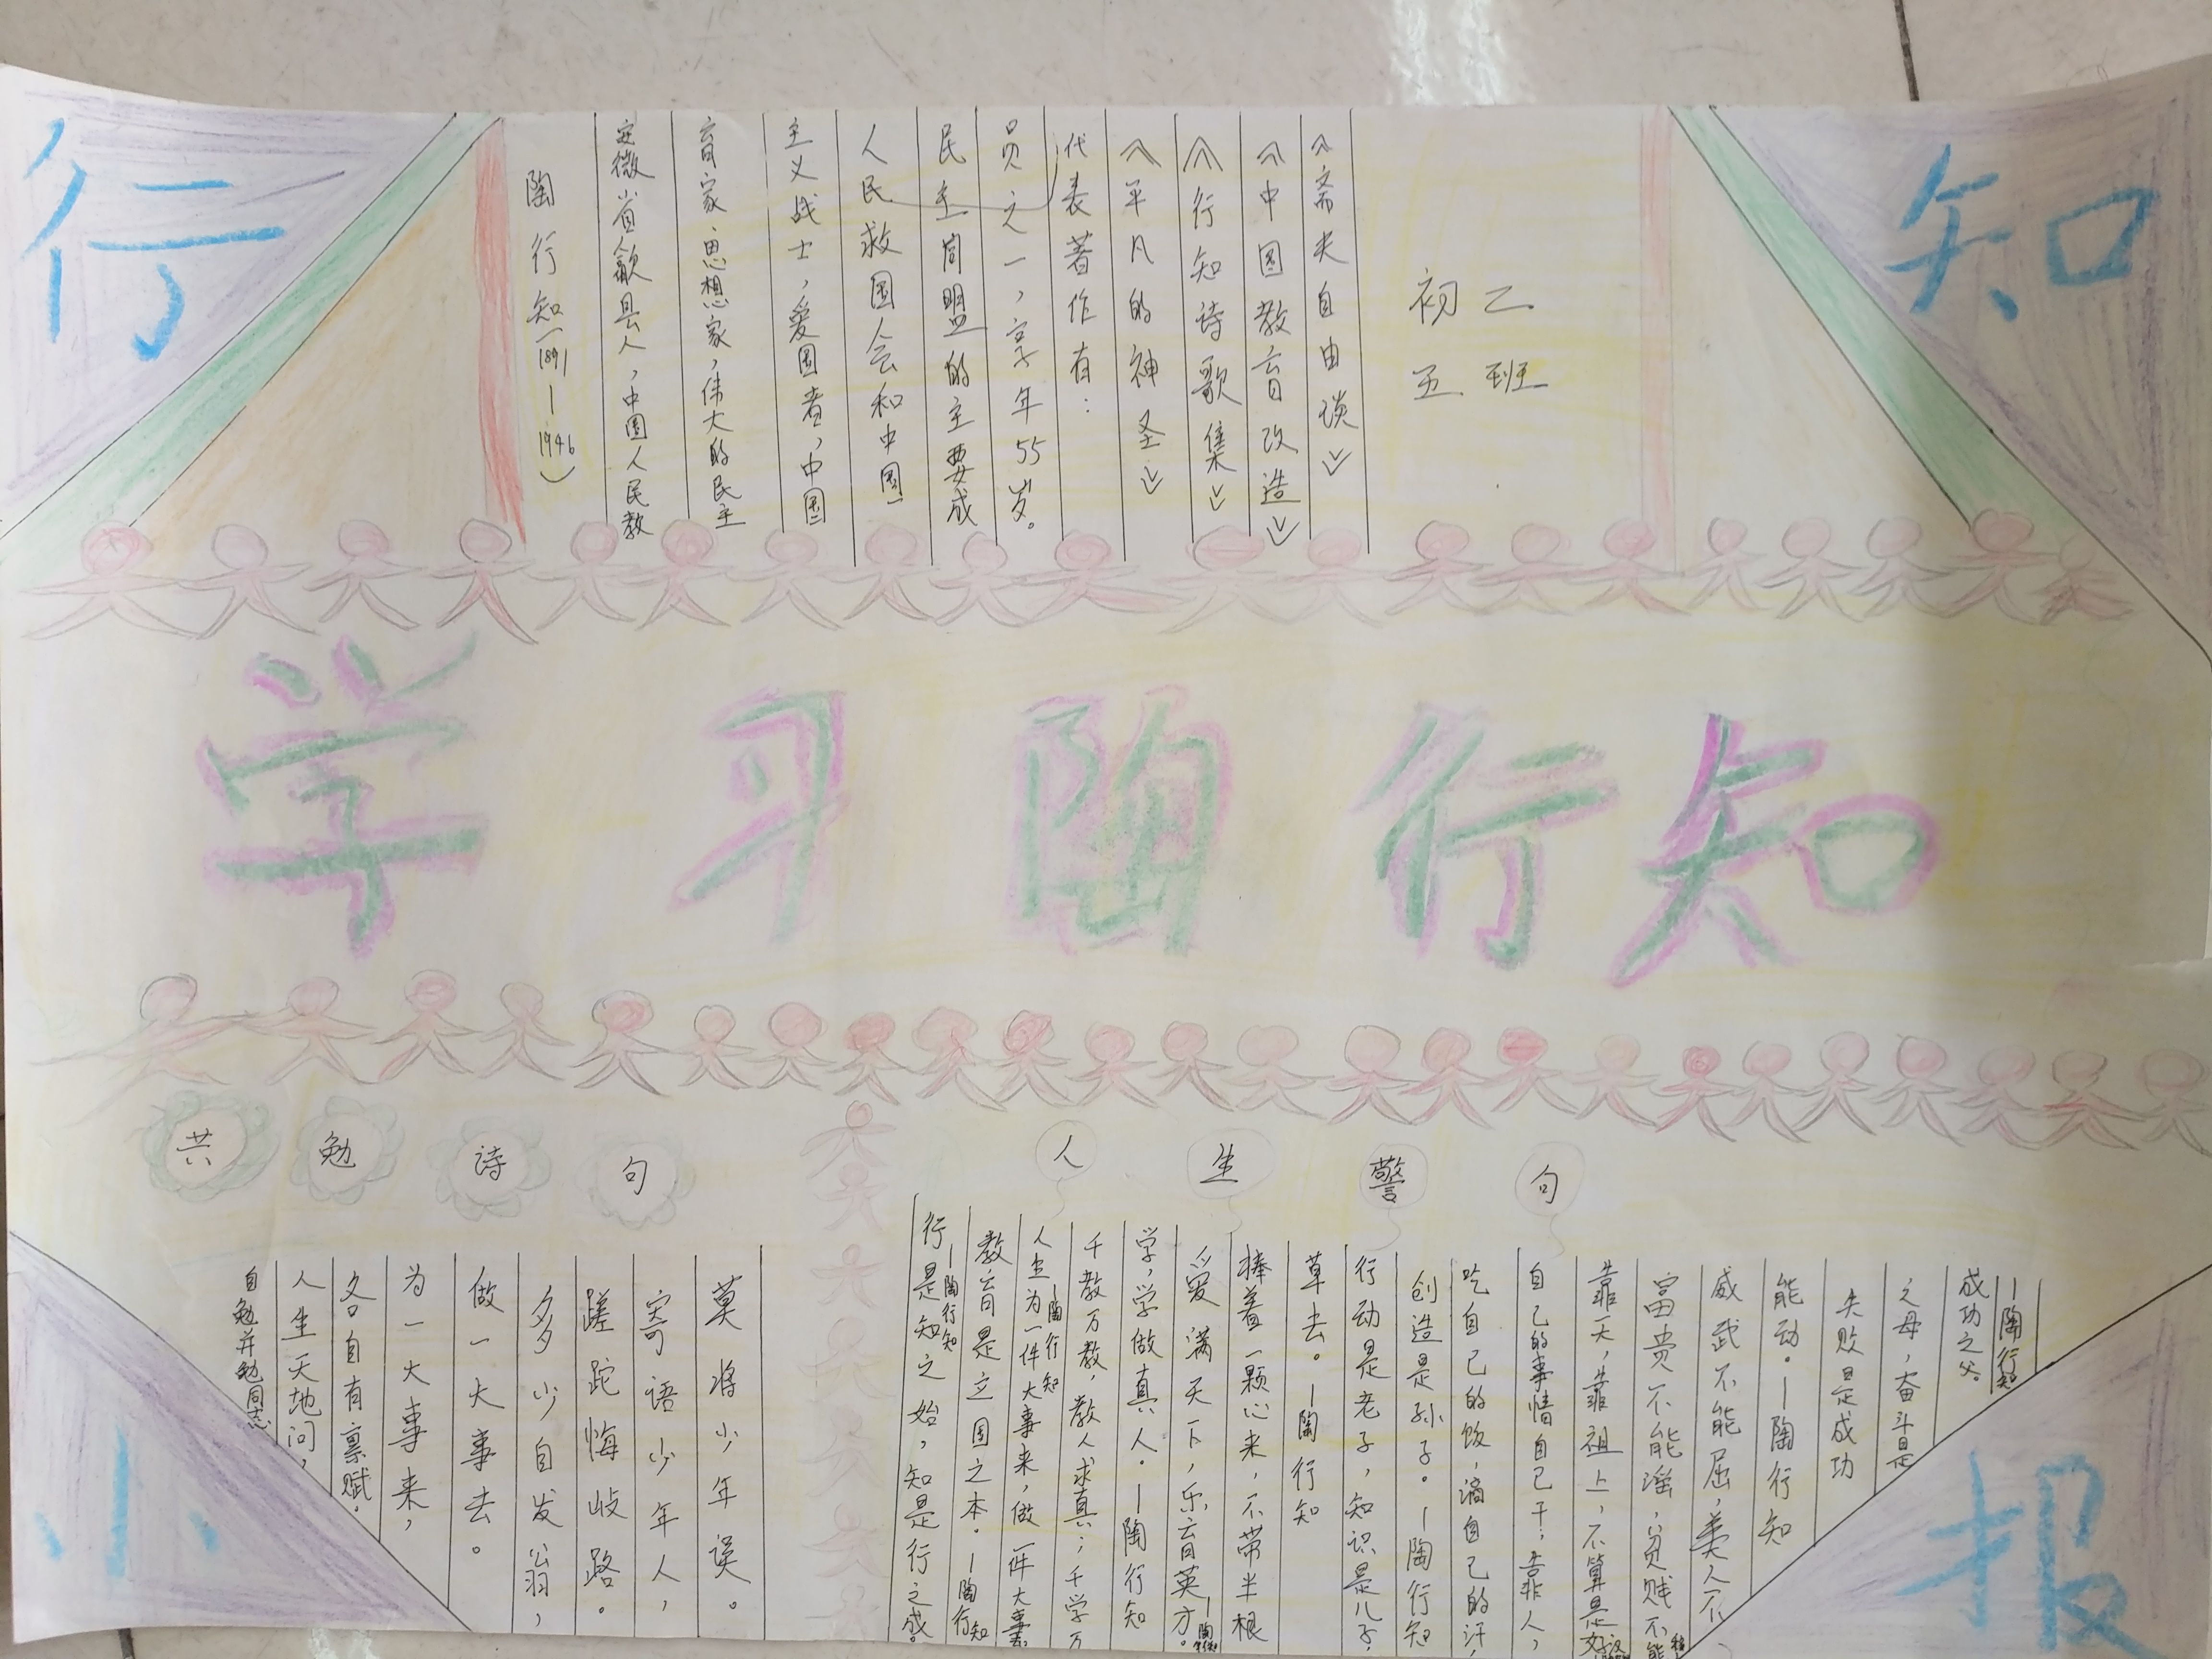 行
知
陶行知(1891—1946)
安徽省歙县人，中国人民教
育家、思想家，伟大的民主
主义战士，爱国者，中国
人民救国会和中国
民主同盟的主要成
员之一，享年55岁。
代表著作有：
《平凡的神圣》
《行知诗歌集》
《中国教育改造》
《斋夫自由谈》
初乙
五班
学习陶行知
共勉诗句
自勉并勉同志
人生天地间，
各自有禀赋。
为一大事来，
做一大事去。
多少自发翁，
蹉跎悔歧路。
寄语少年人，
莫将少年误。
人生警句
行是知之始，知是行之成。
—陶行知
教育是立国之本。—陶行知
人生为一件大事来，做一件大事
陶行知
千教万教，教人求真；千学万
学，学做真人。—陶行知
爱满天下，乐育英才。—陶行知
捧着一颗心来，不带半根
草去。—陶行知
行动是老子，知识是儿子，
创造是孙子。—陶行知
吃自己的饭，滴自己的汗，
自己的事情自己干；靠人，
靠天，靠祖上，不算是好汉
富贵不能淫，贫贱不能移
威武不能屈，美人不
能动。—陶行知
失败是成功
之母，奋斗是
成功之父。
—陶行知
小
报